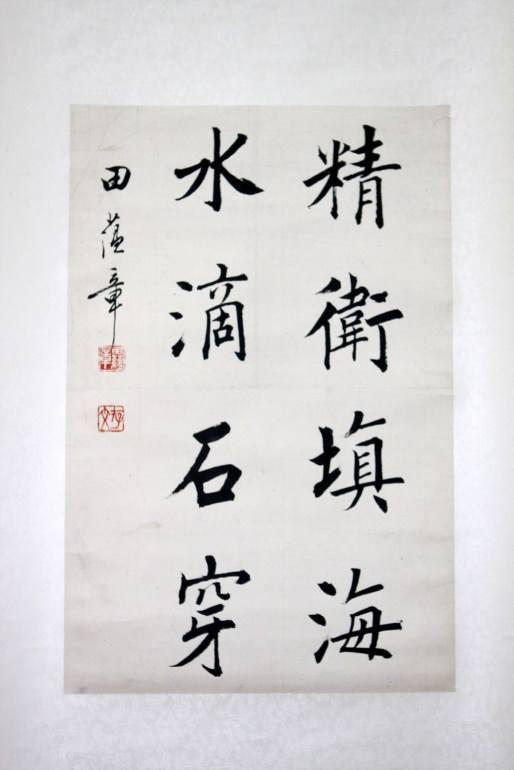 精衛填海
水滴石穿
田蕴章